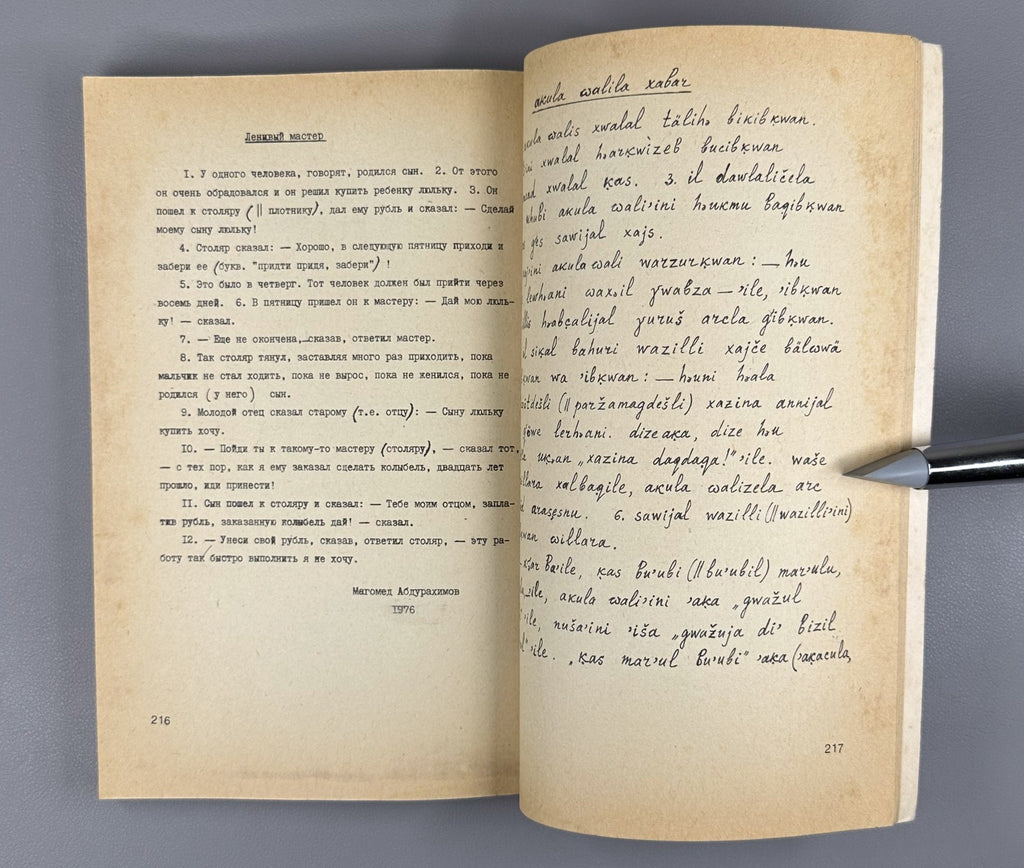 Ленивый мастер
I. У одного человека, говорят, родился сын. 2. От этого
он очень обрадовался и он решил купить ребенку люльку. 3. Он
пошел к столяру (|| плотнику), дал ему рубль и сказал: — Сделай
моему сыну люльку!
4. Столяр сказал: — Хорошо, в следующую пятницу приходи и
забери ее (букв. "придти придя, забери") !
5. Это было в четверг. Тот человек должен был прийти через
восемь дней. 6. В пятницу пришел он к мастеру: — Дай мою люль-
ку! — сказал.
7. — Еще не окончена, — сказав, ответил мастер.
8. Так столяр тянул, заставляя много раз приходить, пока
мальчик не стал ходить, пока не вырос, пока не женился, пока не
родился (у него) сын.
9. Молодой отец сказал старому (т.е. отцу): — Сыну люльку
купить хочу.
10. — Пойди ты к такому-то мастеру (столяру), — сказал тот,
— с тех пор, как я ему заказал сделать колыбель, двадцать лет
прошло, иди принести!
II. Сын пошел к столяру и сказал: — Тебе моим отцом, запла-
тив рубль, заказанную колыбель дай! — сказал.
12. — Унеси свой рубль, сказав, ответил столяр, — эту ра-
боту так быстро выполнить я не хочу.
Магомед Абдурахимов
1976
216
akula walila xabar
walis xwalal tälihə bikibḳwan.
xwalal həarḳwizeb bucibḳwan
xwalal ḳas. 3. il dawlaličela
akula wali'ini həukmu baqibḳwan
sawijal xajs.
akula wali warzurḳwan : — həu
waxəil ɣwabza — 'ile, 'ibḳwan
həabçalijal ɣuruš arcla g'ibḳwan.
siḳal bahuri wazilli xajče bälwwä
wa 'ibḳwan : — həuni həala
(|| paržamagdešli) xazina annijal
lerhəani. dizeaḳa, dize həu
uḳəan „xazina daqdaqa!" 'ile. waše
xalbaqile, akula walizela arc
arasẹsnu. 6. sawijal wazilli (|| wazilli'ini)
willara.
ba'ile, ḳas bu'ubi (|| bu'ubil) mar'ulu,
akula wali'ini 'aḳa „gwažul
'ile, nuša'ini 'iša „gwažuja di' bizil
'ile. „ḳas mar'ul bu'ubi" 'aḳa ('aḳacula,
217